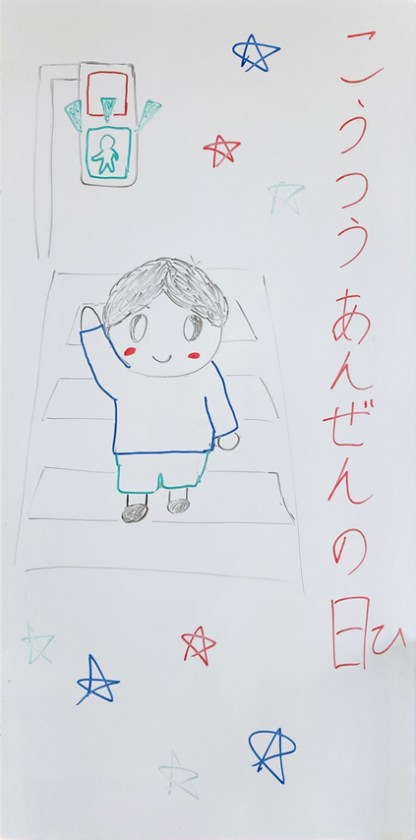 こうつうあんぜんの日
ひ